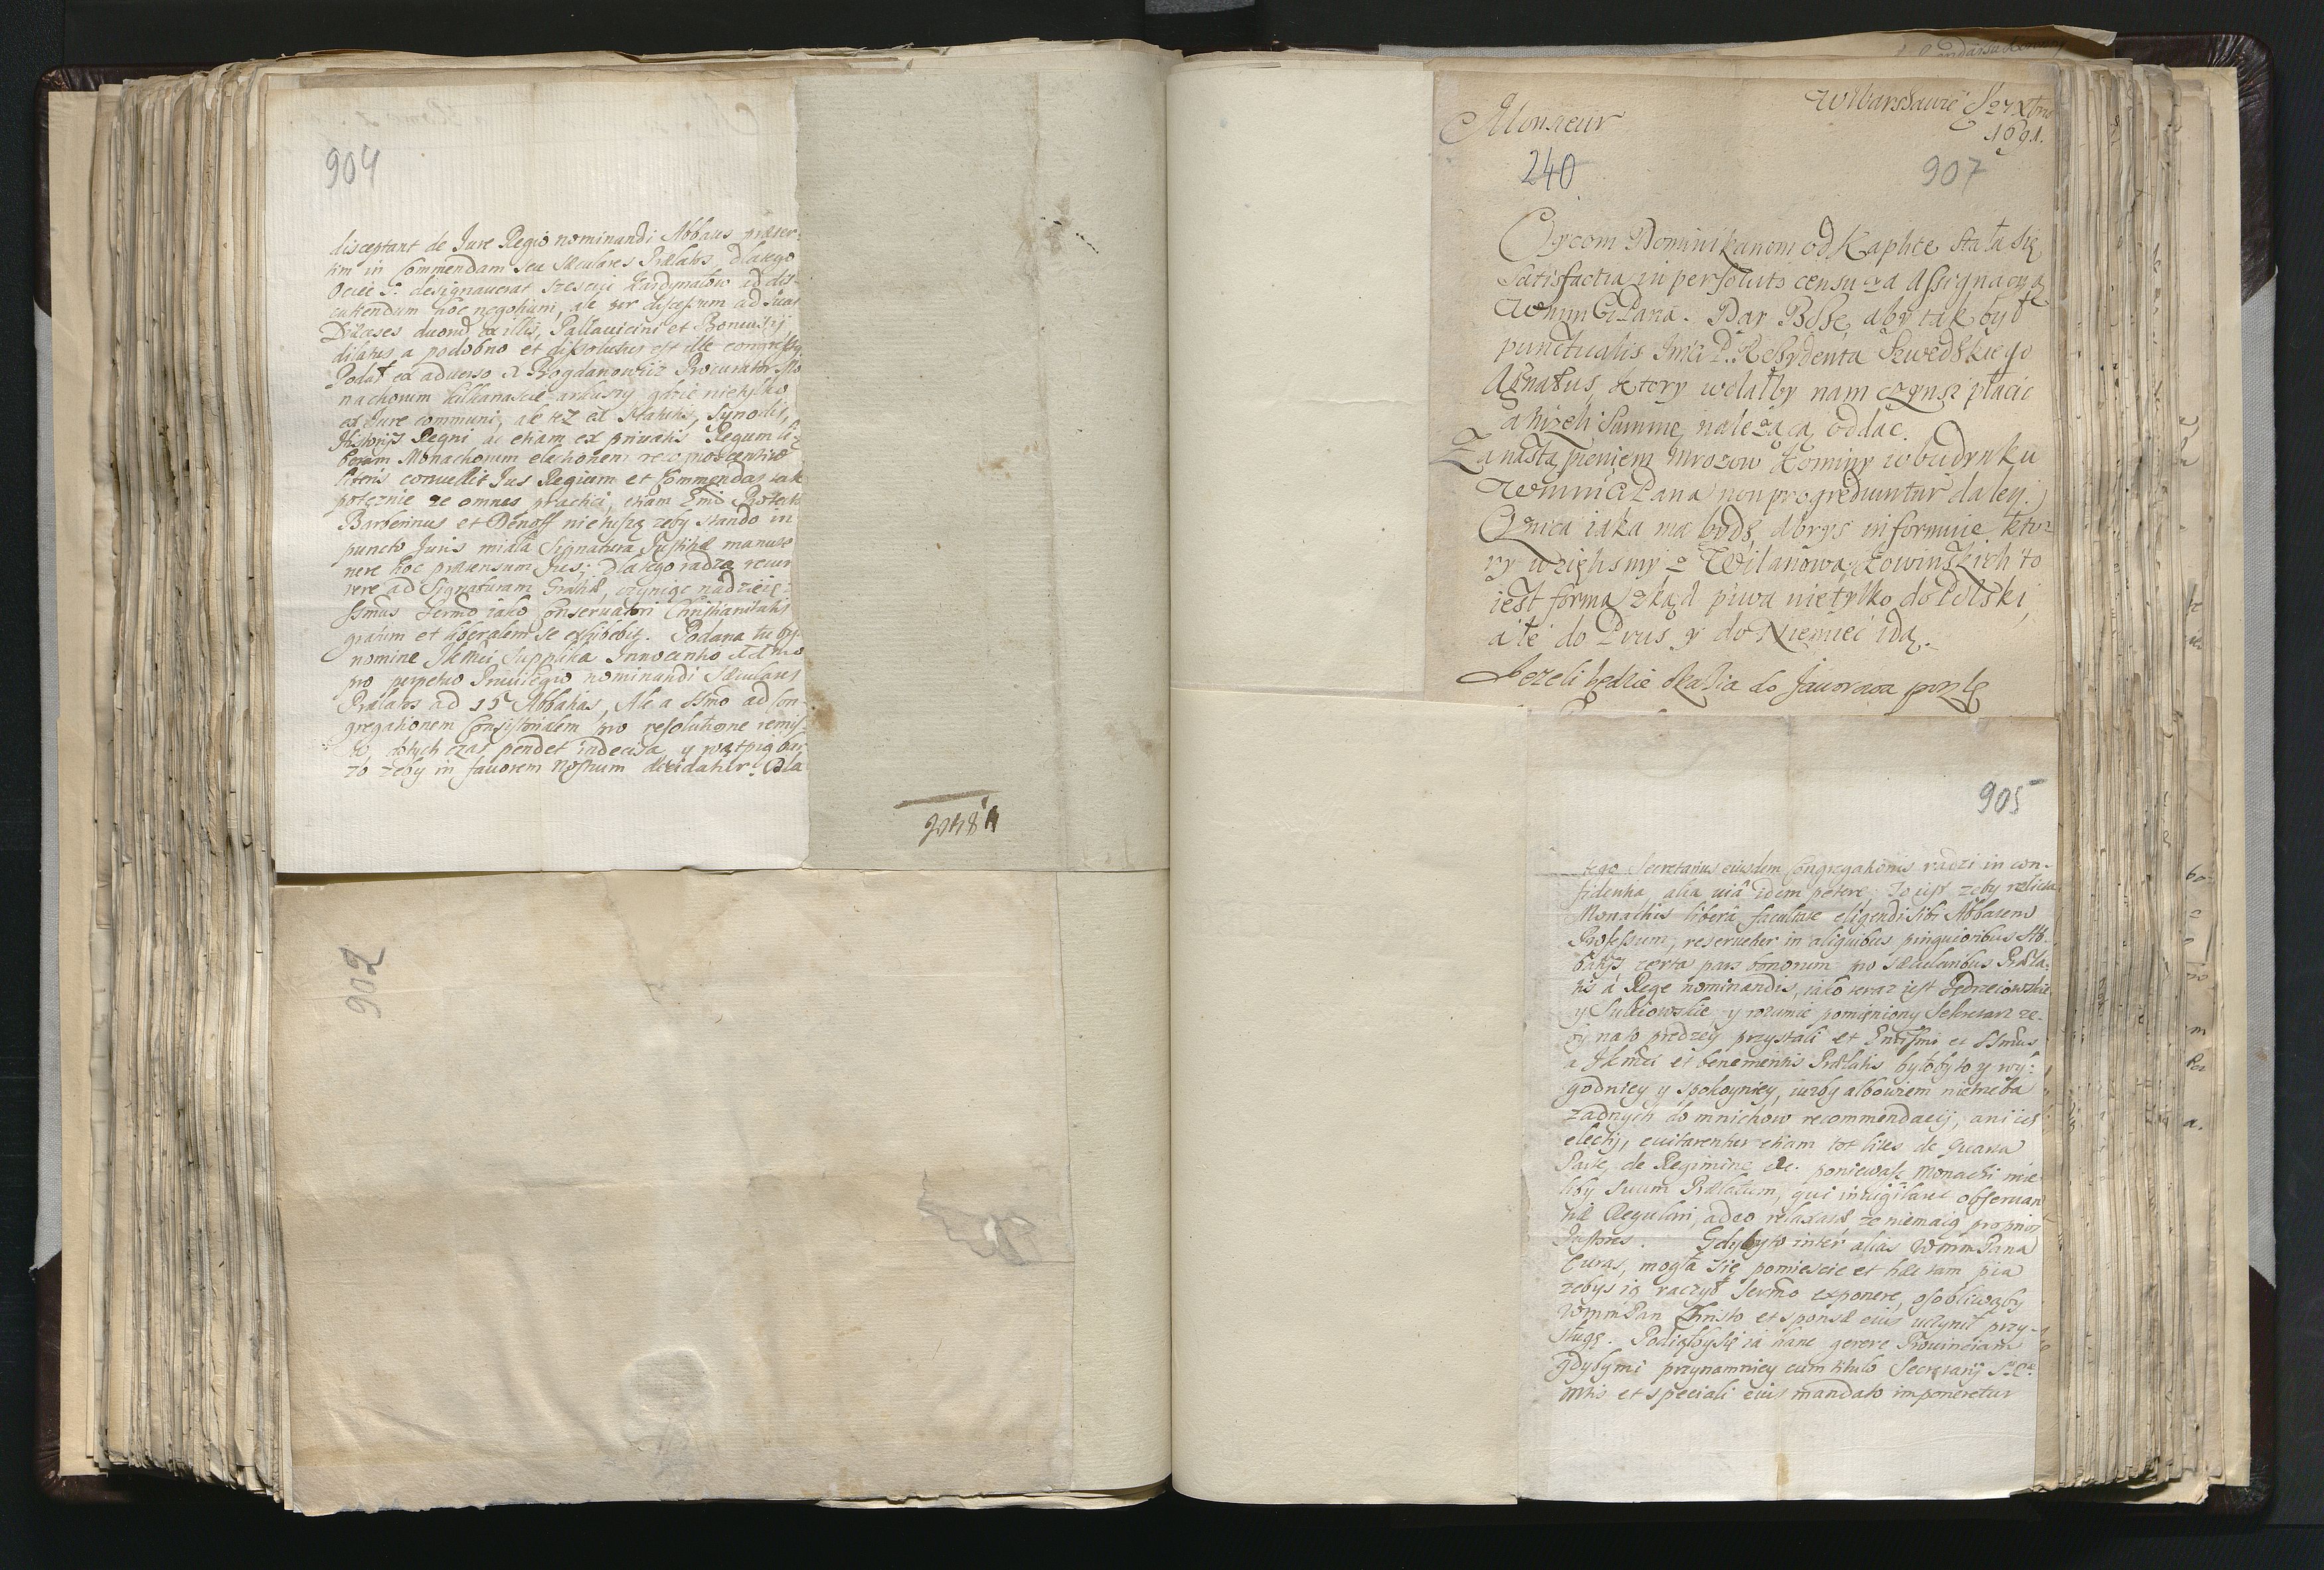 904
disceptant de Jure Regio nominandi Abbates præser-
tim in Commendam seu sæculares Prælatos, dlatego
Ociec S. designauerat szesciu Kardynałow ad dis-
cutiendum hoc negotium, ale per discessum ad suas
Diæceses duorum ex illis, Pallauicini et Bonuisij,
dilatus a podobno et dissolutus est ille congressus
Podał ex aduerso X Bogdanowicz Procurator Mo
nachorum kilkanascie arkuszy gdzie nietylko
ex Jure communi, ale tez ex statutis, Synodis,
Historijs Regni ac etiam ex priuatis Regum li-
beram Monachorum electionem recognoscentium
literis conuellit Jus Regium et Commendas tak
potęznie ze omnes practici, etiam Emi Protect
Barberinus et Dênoff nietuszą zeby stando in
puncto Juris miała Signatura Justitiæ manute
nere hoc prætensum Jus; dlatego radzą recur
rere ad Signaturam Gratiæ, czyniąc nadzieię
SSmus Sermo iako Conseruatori Christianitatis
gratum et liberalem se exhibebit. Podana tu by
nomine JKMci Supplika Innocentio
pro perpetuo Priuilegio nominandi Sæculares
Prælatos ad 15 Abbatias, Ale a SSmo ad Con-
gregationem Consistorialem pro resolutione remis
dotych czas pendet indecisa, y wątpię bar
zo zeby in fauorem nostrum decidatur. Dla
902
Monsieur
W Warszawie
1691.
240
907
Oycom Dominikanom od Kaphte stała się
Satisfactia in persoluto censu za Assignacyą
WMMCi Pana. Day Boże, aby tak był
punctualis Jmci P. Residenta Szwedskiego
Agnatus, ktory wolałby nam czynsz płacic
a nizeli Summę nalezącą oddac.
Za nastąpieniem mrozow Kominy w budynku
WMMCi Pana non progrediuntur daley.
Oznica iaka ma bydz, abrys informuie kto-
ry wzięlismy z Wilanowa, Łowinskich to
iest forma zkąd piwa nietylko do Polski,
ale do Prus y do Niemiec idą.
Jezeli będzie okasia do Jaworowa przez
905
tego Secretarius eiusdem Congregationis radzi in con-
fidentia, alia uiâ idem petere; To iest zeby relicta
Monachis liberâ facultate eligendi sibi Abbatem
Professum, reseruetur in aliquibus pinguioribus Ab-
batijs certa pars bonorum pro sæcularibus Præla-
tis à Rege nominandis, iako teraz iest Jędrzeiowskie
y Suleiowskie, y rozumie pomieniony Sekretarz ze-
by nato prędzey przystali et Emissmi et SSmus
a JKMci et benemeritis Prælatis byłoby to y wy-
godniey y spokoyniey, iuzby albowiem nietrzeba
zadnych do mnichow recommendacij, ani ich
electij, euitarentur etiam tot lites de Quarta
Parte, de Regimine etc. poniewasz Monachi mie
liby suum Prælatum, qui inuigilaret obseruan
tiæ Regulari, adeo relaxatæ ze niemaią proprios
Pastores. Gdyby to inter alias WMM Pana
Curas, mogła się pomiescic et hæc tam pia
zebys ią raczył Sermo exponere, osobliwąby
WMM Pan Christo et sponsæ eius uczynił przy-
sługę. Podiąłbysię ia hanc gerere Prouinciam
gdybymi przynamniey cum titulo Secretarij
Mtis et speciali eius mandato imponeretur